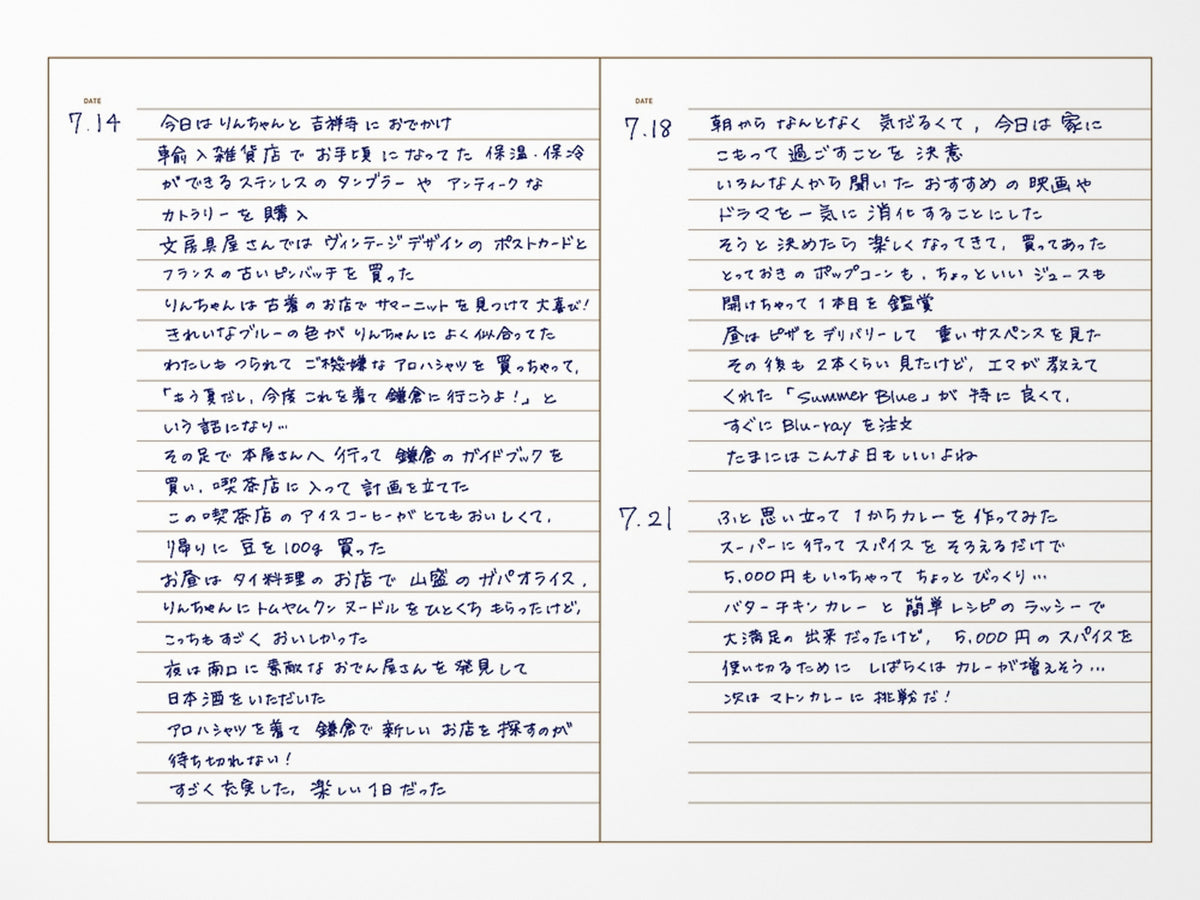 DATE
7.14
今日は りんちゃんと 吉祥寺に おでかけ
輸入雑貨店で お手頃になってた 保温・保冷
ができるステンレスの タンブラーや アンティークな
カトラリーを 購入
文房具屋さんでは ヴィンテージデザインの ポストカードと
フランスの古いピンバッチを 買った
りんちゃんは 古着のお店で サマーニットを見つけて大喜び!
きれいなブルーの色が りんちゃんに よく似合ってた
わたしも つられて ご機嫌な アロハシャツを 買っちゃって、
「もう夏だし、今度これを着て 鎌倉に行こうよ!」と
いう話になり…
その足で 本屋さんへ 行って 鎌倉のガイドブックを
買い、喫茶店に入って計画を立てた
この喫茶店のアイスコーヒーがとてもおいしくて、
帰りに 豆を100g 買った
お昼は タイ料理の お店で 山盛のガパオライス、
りんちゃんにトムヤムクン ヌードルをひとくち もらったけど、
こっちもすごく おいしかった
夜は南口に 素敵な おでん屋さんを 発見して
日本酒をいただいた
アロハシャツを着て 鎌倉で 新しい お店を 探すのが
待ち切れない!
すごく充実した、楽しい1日だった
DATE
7.18
朝から なんとなく 気だるくて、今日は 家に
こもって 過ごすことを 決意
いろんな人から聞いた おすすめの 映画や
ドラマを一気に 消化することにした
そうと決めたら 楽しくなってきて、買ってあった
とっておきの ポップコーンも、ちょっといい ジュースも
開けちゃって 1本目を 鑑賞
昼は ピザを デリバリーして 重いサスペンスを見た
その後も 2本くらい 見たけど、エマが 教えて
くれた 「Summer Blue」が 特に 良くて、
すぐに Blu-ray を注文
たまにはこんな日もいいよね
7.21
ふと 思い立って 1からカレーを 作ってみた
スーパーに行って スパイスを そろえるだけで
5,000円もいっちゃって ちょっと びっくり…
バターチキンカレー と 簡単レシピの ラッシーで
大満足の 出来だったけど、5,000円のスパイスを
使い切るために しばらくは カレーが増えそう…
次は マトンカレーに 挑戦だ!